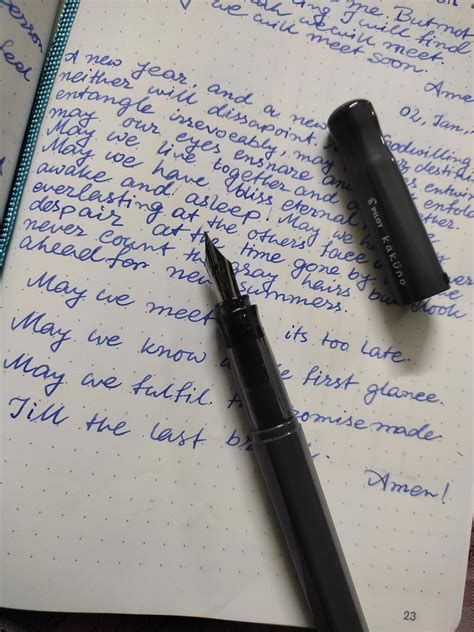 me. But not
I will find
we will meet
we will meet soon.
Amen
02, Jan,
A new year, and a new Godwilling
neither will dissapoint
entangle irrevocably, may destin
may our eyes ensnare and entwin
May we live together and
May we have bliss eternal, together
awake and asleep! May we
everlasting at the others face
despair at the time gone by
never count the gray hairs but look
ahead for new summers.
May we meet its too late.
May we know first glance.
May we fulfil promise made
Till the last
Amen!
PILOT kaküno
23
person